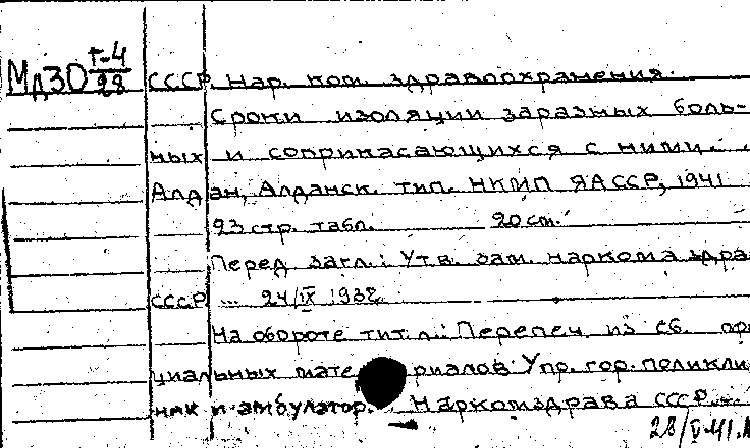 МдЗО Т-4/28
СССР. Нар. ком. здравоохранения.
Сроки изоляции заразных боль-
ных и соприкасающихся с ними...
Алдан, Алданск. тип. НКМП ЯАССР, 1941
23 стр. табл. 20 см.
Перед загл.: Утв. зам. наркома здра
СССР ... 24/IX 1938.
На обороте тит. л.: Перепеч из сб. оф
циальных мате риалов Упр. гор. поликли
ник и амбулатор. Наркомздрава СССР...
28/V-41.